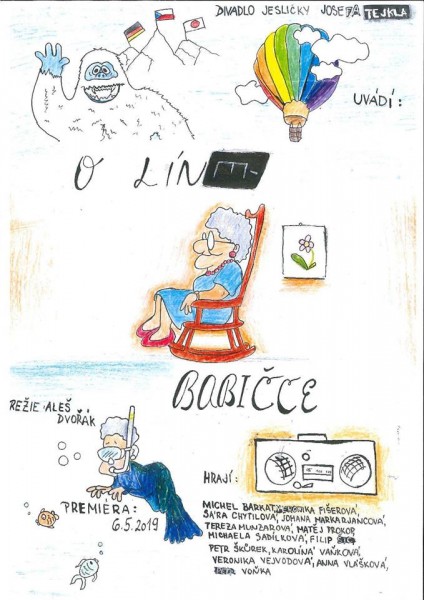 DIVADLO JESLIČKY JOSEFA TEJKLA
UVÁDÍ:
O LÍNÉ
BABIČCE
REŽIE ALEŠ
DVOŘÁK
PREMIÉRA:
6.5.2019
HRAJÍ:
MICHEL BARKAT, FIŠEROVÁ,
SÁRA CHYTILOVÁ, JOHANA MARKARJANCOVÁ,
TEREZA MUNZAROVÁ, MATĚJ PROKOP,
MICHAELA SADÍLKOVÁ, FILIP
PETR ŠKŮREK, KAROLÍNA VAŇKOVÁ,
VERONIKA VEJVODOVÁ, ANNA VLÁŠKOVÁ,
VOŇKA